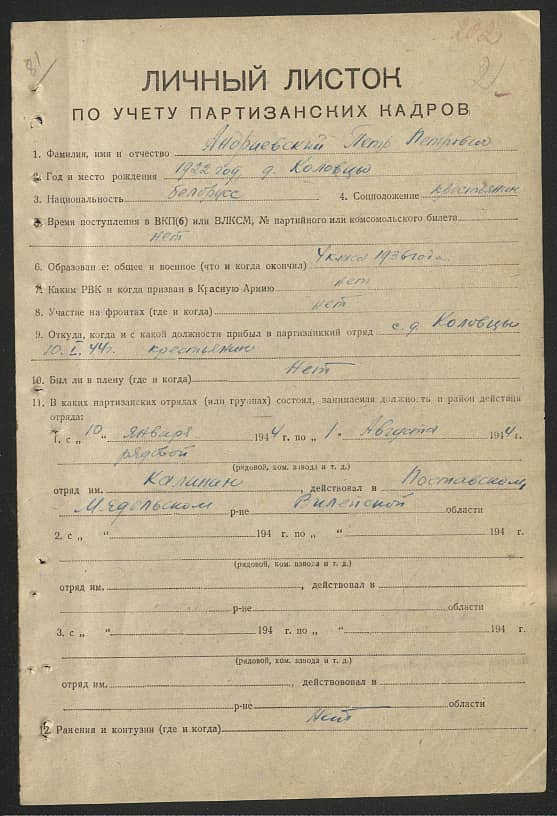 81
202
ЛИЧНЫЙ ЛИСТОК
ПО УЧЕТУ ПАРТИЗАНСКИХ КАДРОВ
1. Фамилия, имя и отчество Андриевский Петр Петрович
2. Год и место рождения 1922 год, д. Коловцы
3. Национальность белорусс 4. Соцположение крестьянин
5. Время поступления в ВКП(б) или ВЛКСМ, № партийного или комсомольского билета
нет
6. Образован е: общее и военное (что и когда окончил) 4 класа 1936 года
7. Каким РВК и когда призван в Красную Армию нет
8. Участие на фронтах (где и когда) нет
9. Откуда, когда и с какой должности прибыл в партизанский отряд с. д. Коловцы
10. I. 44 г. крестьянин
10. Был ли в плену (где и когда) Нет
11. В каких партизанских отрядах (или группах) состоял, занимаемая должность и район действия
отряда:
1. с „ 10 " января 1944 г. по „ 1. Августа 1944 г.
рядовой
(рядовой, ком. взвода и т. д.)
отряд им. Калинин, действовал в Поставском,
Мядельском р-не Вилейской области
2. с „ " 194 г. по „ " 194 г.
(рядовой, ком. взвода и т. д.)
отряд им. , действовал в
р-не области
3. с „ " 194 г. по „ " 194 г.
(рядовой, ком. взвода и т. д.)
отряд им. , действововал в
р-не области
12. Ранения и контузии (где и когда) Нет